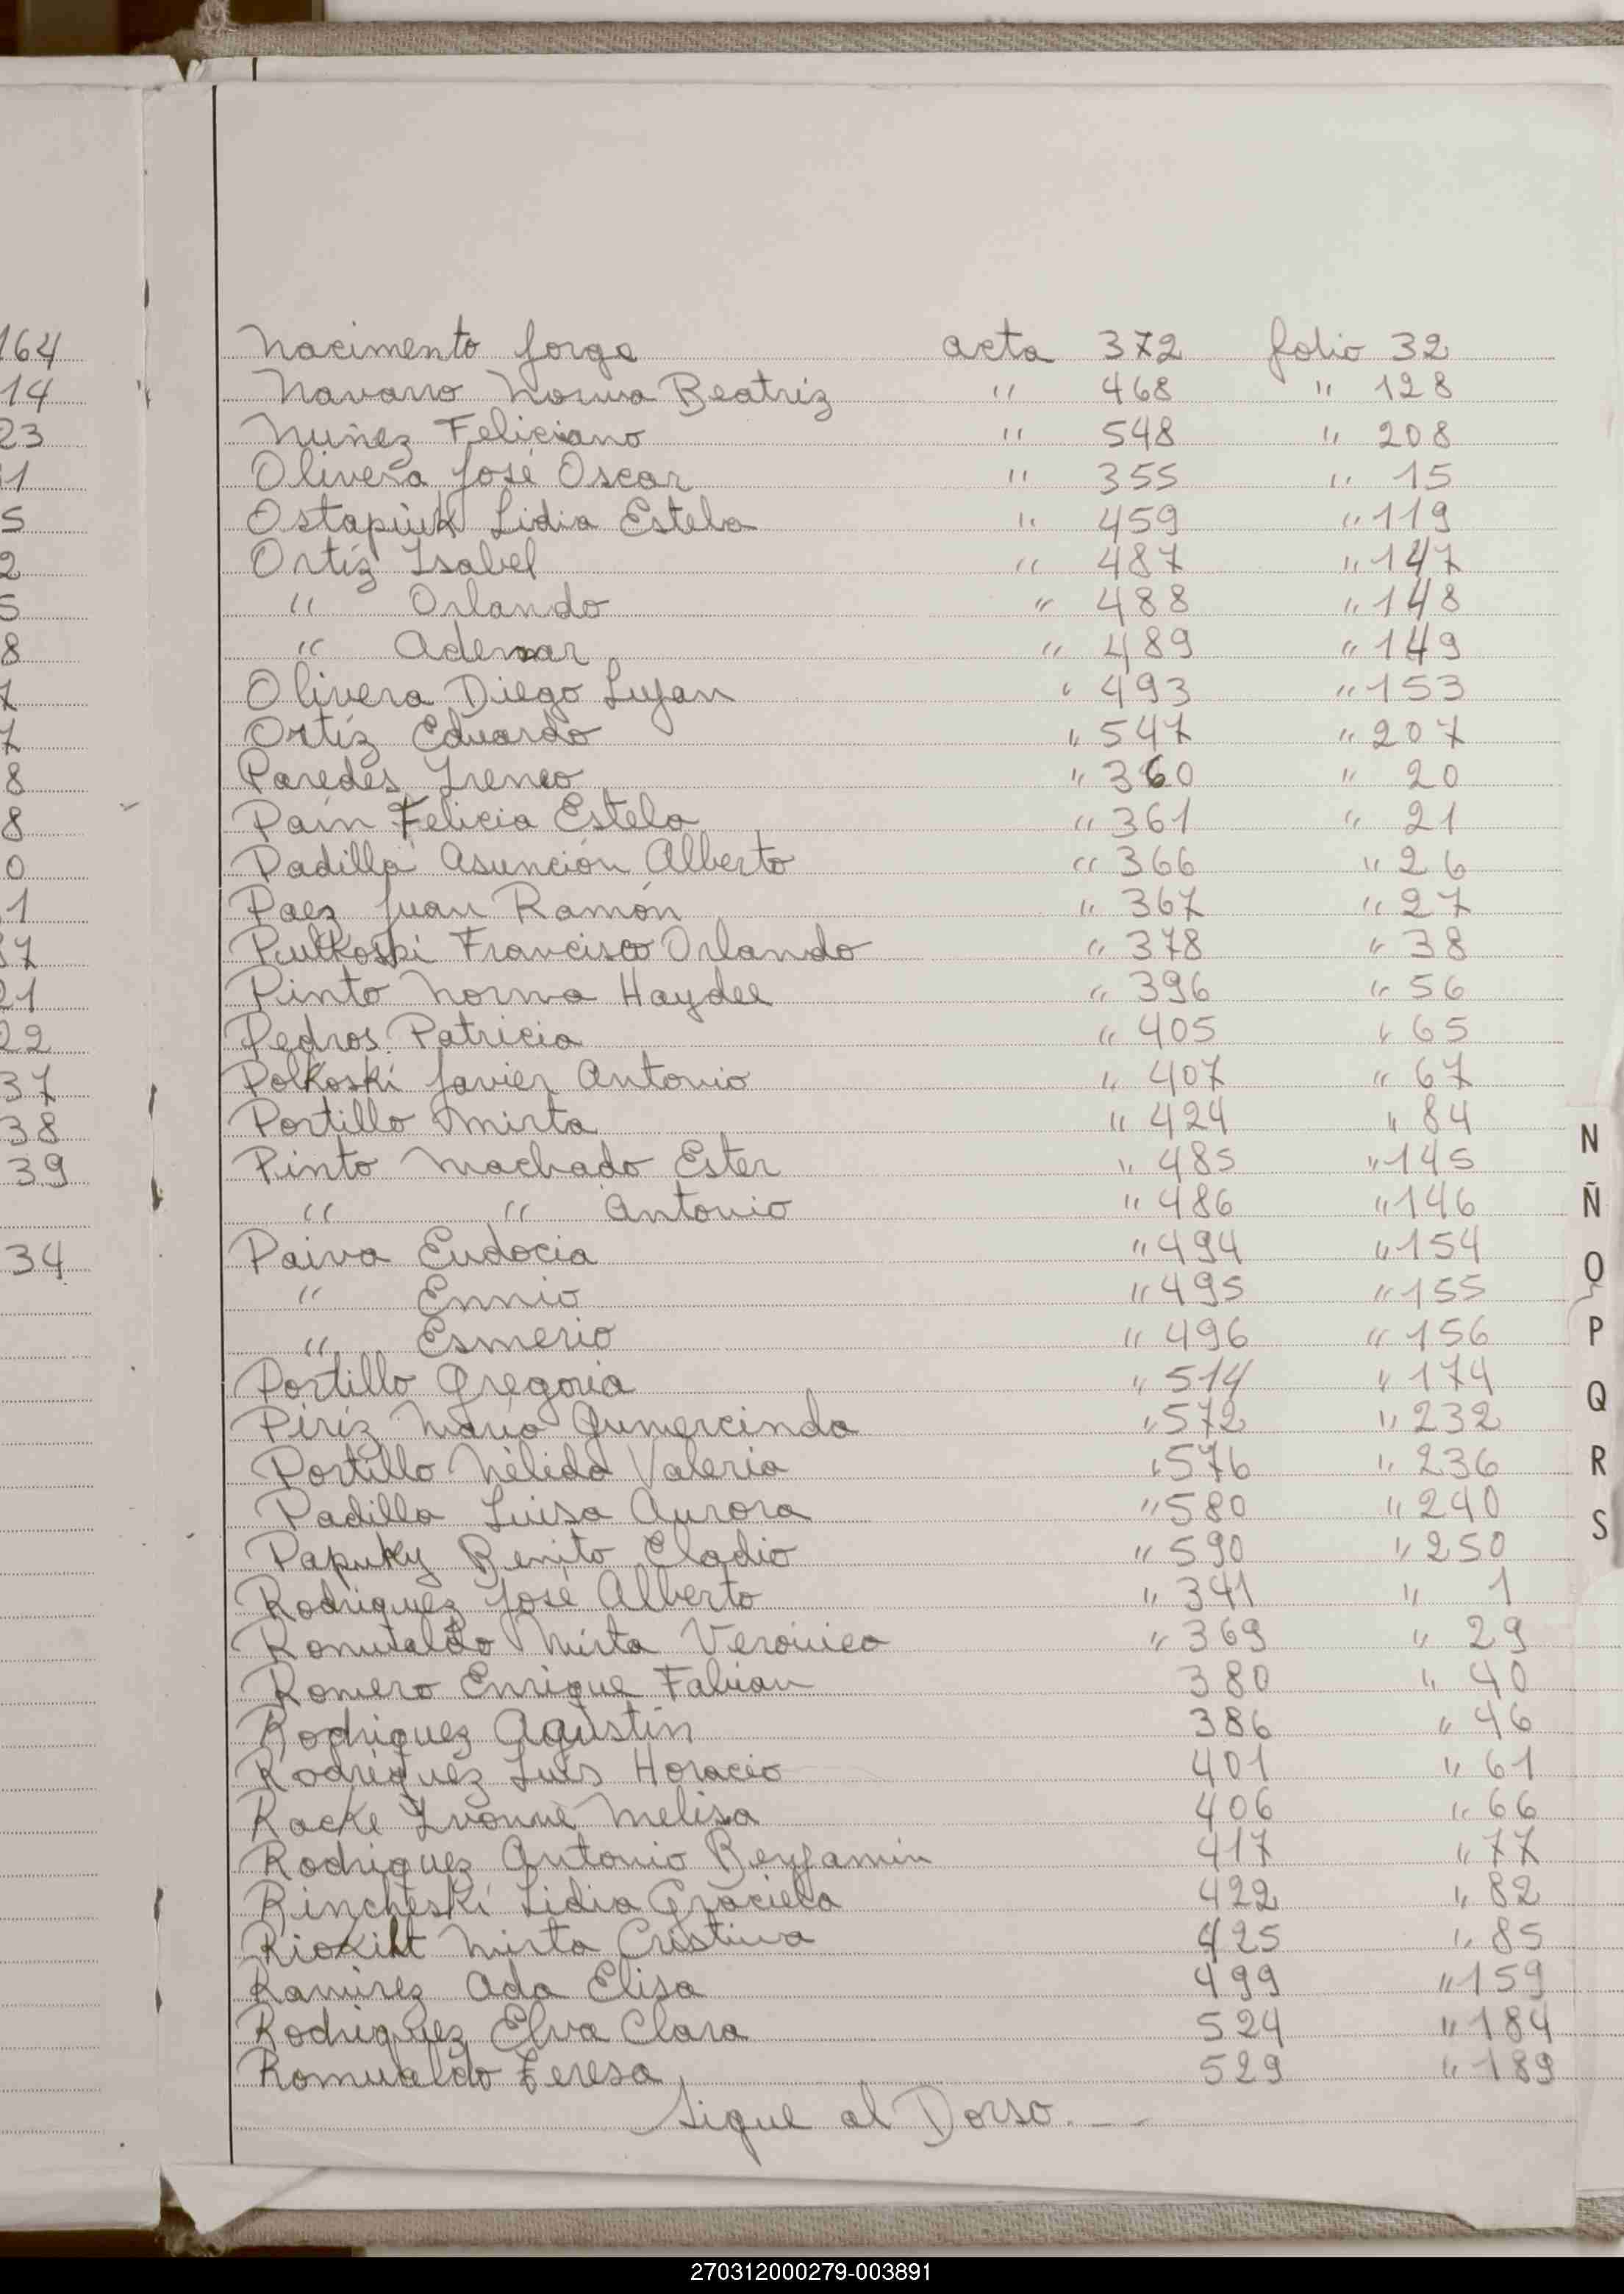 Nacimento Jorge acta 372 folio 32
Navarro Norma Beatriz " 468 " 128
Nuñez Feliciano " 548 " 208
Olivera José Oscar " 355 " 15
Ostapiuk Lidia Estela " 459 " 119
Ortíz Isabel " 487 " 147
" Orlando " 488 " 148
" Ademar " 489 " 149
Olivera Diego Lujan " 493 " 153
Ortíz Eduardo " 547 " 207
Paredes Ireneo " 360 " 20
Paim Felicia Estela " 361 " 21
Padilla Asunción Alberto " 366 " 26
Paez Juan Ramón " 367 " 27
Pulkoski Francisco Orlando " 378 " 38
Pinto Norma Haydee " 396 " 56
Pedros Patricia " 405 " 65
Polkoski Javier Antonio " 407 " 67
Portillo Mirta " 424 " 84
Pinto Machado Ester " 485 " 145
" " Antonio " 486 " 146
Paiva Eudocia " 494 " 154
" Ennio " 495 " 155
" Esmerio " 496 " 156
Portillo Gregoria " 514 " 174
Píriz Mario Gumercindo " 572 " 232
Portillo Nélida Valeria " 576 " 236
Padilla Luisa Aurora " 580 " 240
Papuky Benito Eladio " 590 " 250
Rodriguez José Alberto " 341 " 1
Romualdo Mirta Veronica " 369 " 29
Romero Enrique Fabian 380 " 40
Rodriguez Agustín 386 " 46
Rodriguez Luis Horacio 401 " 61
Racke Ivonne Melisa 406 " 66
Rodriguez Antonio Benjamin 417 " 77
Rincheski Lidia Graciela 422 " 82
Mirta Cristina 425 " 85
Ramirez Ada Elisa 499 " 159
Rodriguez Elva Clara 524 " 184
Romualdo Teresa 529 " 189
Sigue al Dorso. _ _
164
14
23
1
5
2
5
8
7
7
8
8
0
1
37
21
22
37
38
39
34
N
Ñ
O
P
Q
R
S
270312000279-003891